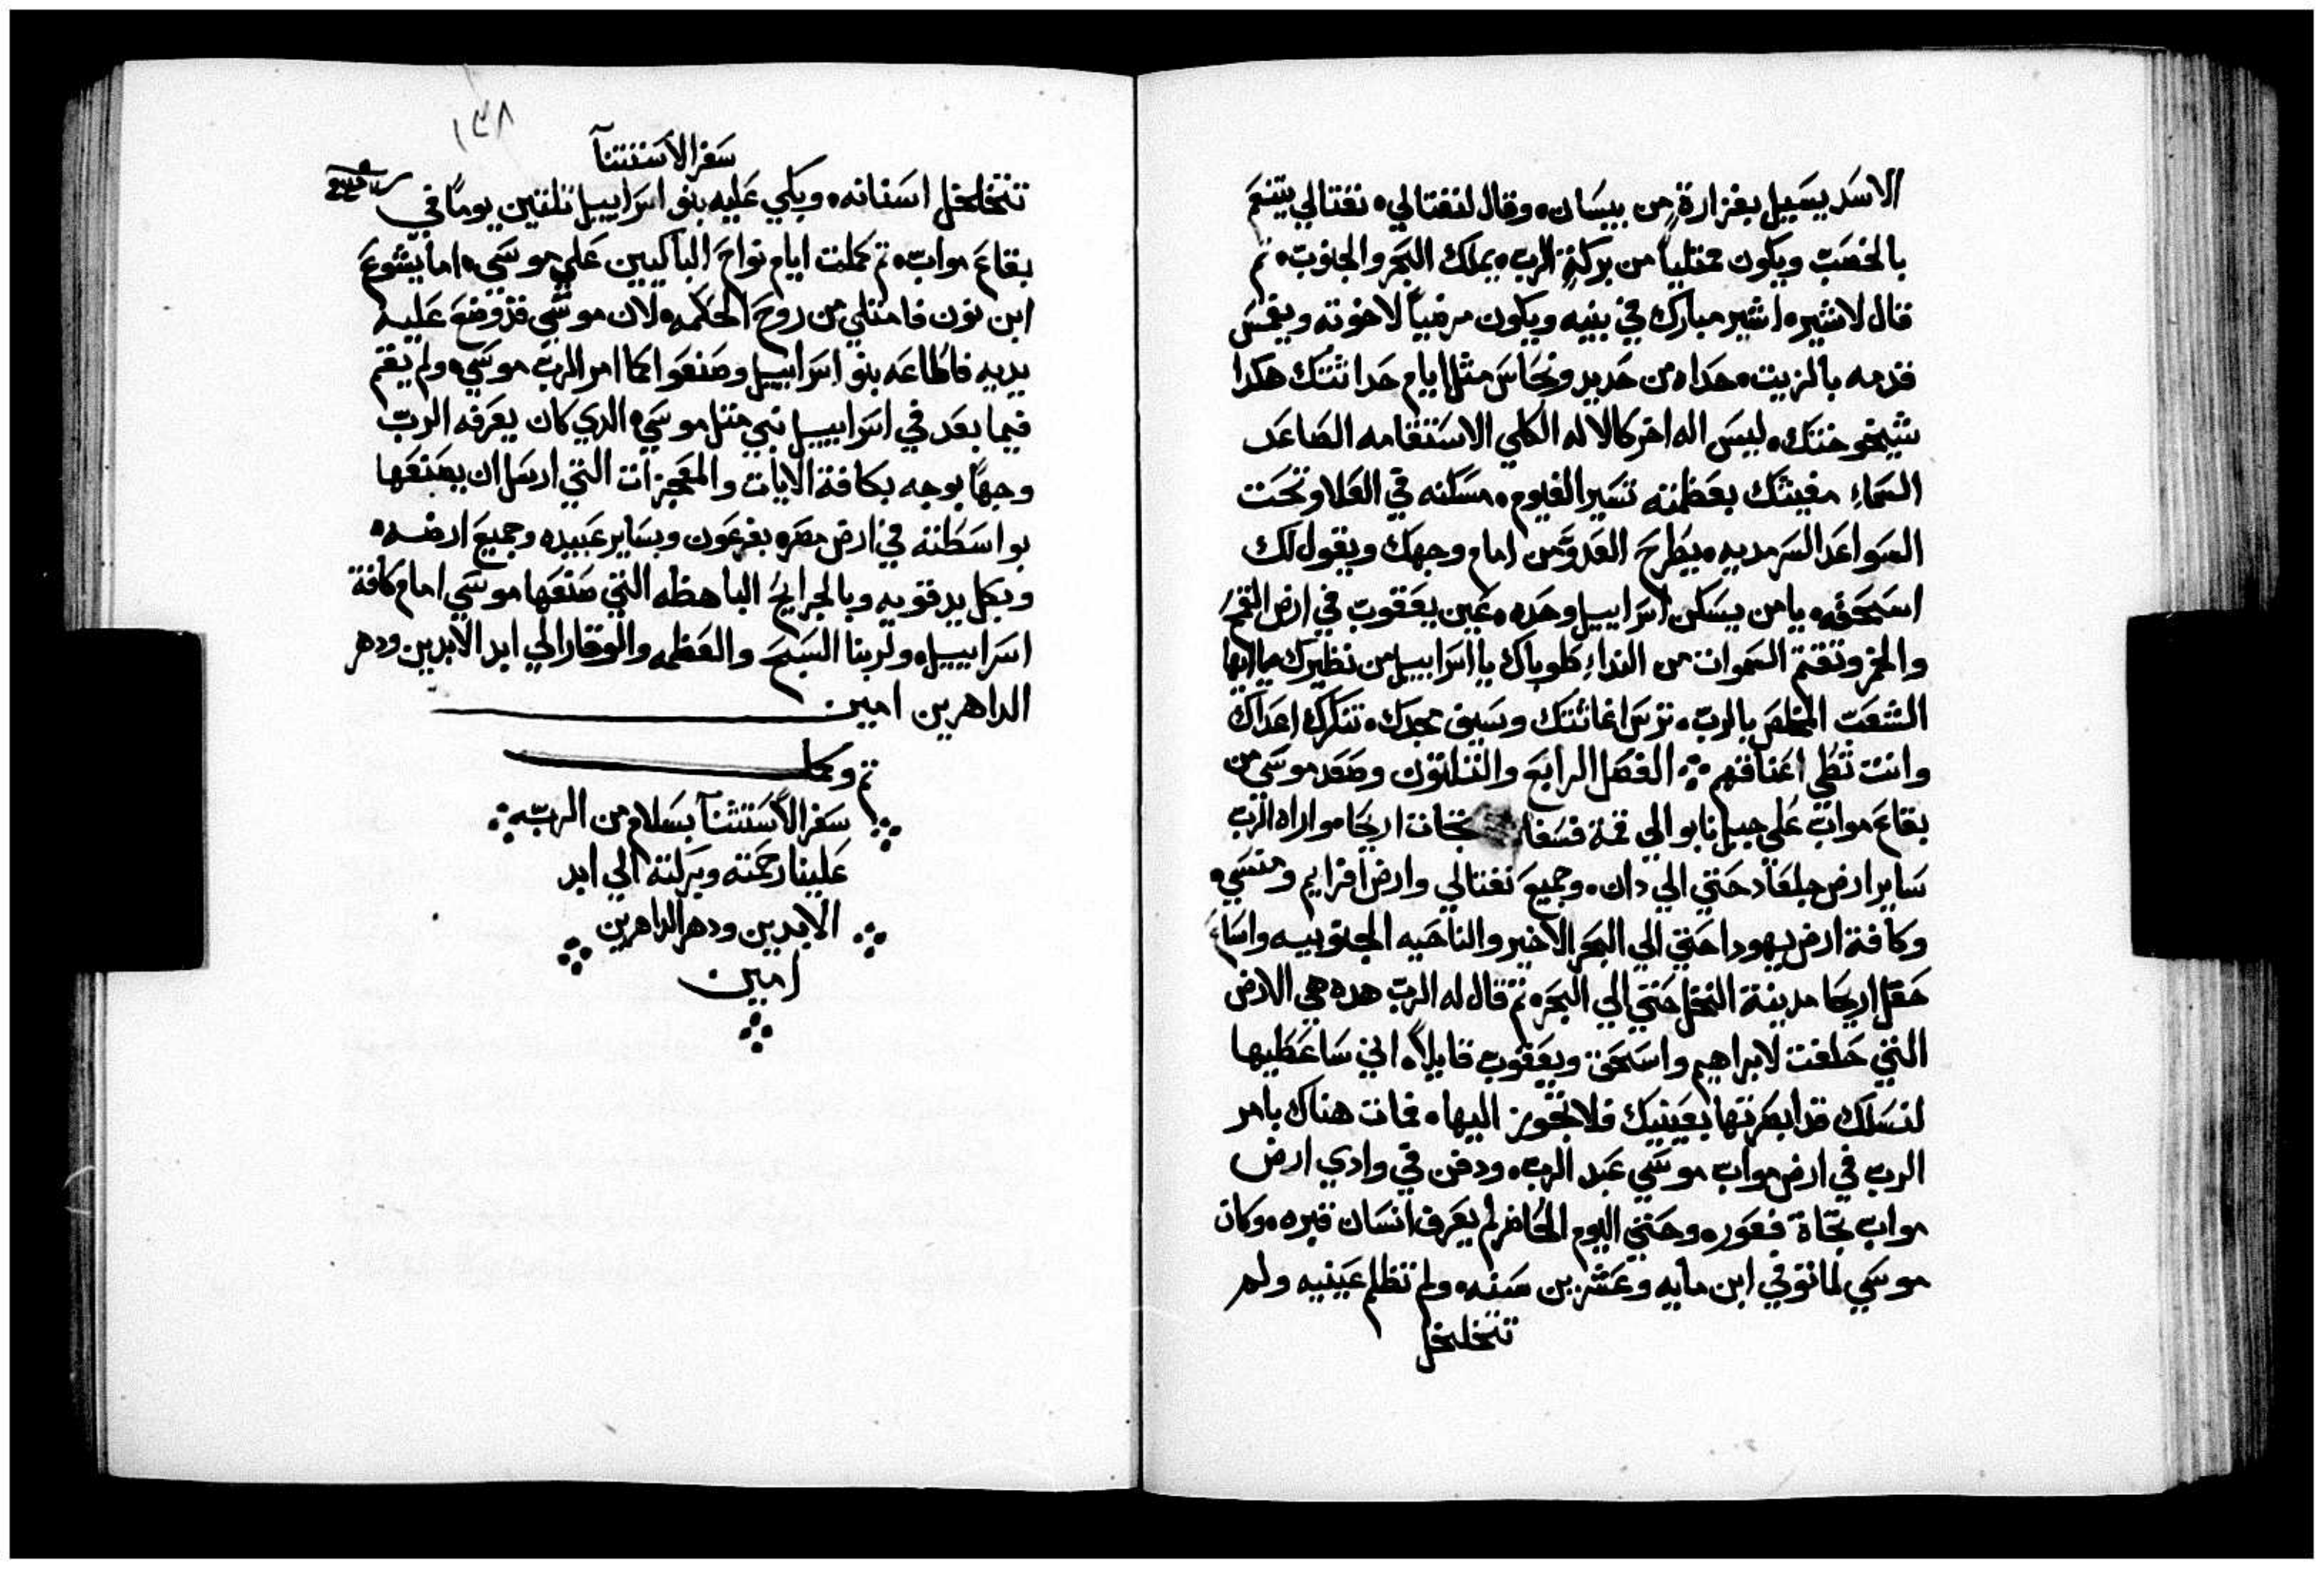 الاسَد يسَيل بغزارةٍ من بيسَان، وقال لنفتالي، نفتالي يتنعَم
بالخصَب ويكون ممتلياً من بركة الرب، يملك البحَر والجنوب، تم
قال لاشير، اشير مبارك في بنيه ويكون مرضياً لاخوته ويغمسَ
قدمه بالزيت، حداه من حَديد ونحاسَ مثل ايام حَداثتك هكدا
شيخوختك، ليسَ اله اخر كالاله الكلي الاسَتقامه الصَاعَد
السَماءِ مغيثك بعَظمته تسَير الغيوم، مسَكنه في العَلا وتحَت
السَواعَد السَرمديه، يطَرحَ العَدوَّ من امام وجهك ويقول لك
اسَحَقه، يا من يسَكن اسَراييل وحَده، عَين يعَقوب في ارض القمحَ
والخمر وتقتم السَموات من النداءِ، طوباك يا اسَراييل من نظيرك يا ايها
الشعَب المخلصَ بالرب، ترسَ اغاثتك وسَيف مجدك، تنكرك اعَداك
وانت تطَي اعَناقهم ؞ الفصَل الرابعَ والتلتون وصَعَد موسَي من
بقاعَ مواب عَلي جبل نابو الي قمة فسَغا تجاه اريحَا، واراه الرب
سَاير ارض جلعَاد حَتي الي دان، وجميعَ نفتالي وارض افرايم ومنسَي،
وكافة ارض يهودا حَتي الي البحَر الاخير والناحَيه الجنوبيه واسَاعَ
حَقل اريحَا مدينة النخل حَتي الي البحَر، تم قال له الرب هده هي الارض
التي حَلفت لابراهيم واسَحَق ويعَقوب قايلاً، اني سَاعَطَيها
لنسَلك قد ابصَرتها بعَينيك فلا تجوز اليها، فمات هناك بامر
الرب في ارض مواب موسَي عَبد الرب، ودفن في وادي ارض
مواب تجاة فعَور، وحَتي اليوم الحَاضر لم يعَرف انسَان قبره، وكان
موسَي لما توفي ابن مايه وعَشرين سَنه، ولم تظلم عَينيه ولم
تتخلخل
١٣٨
سَفر الاسَتتنآ
تتخلخل اسَنانه، وبكي عَليه بنو اسَراييل تلتين يوماً في
بقاعَ مواب، تم كملت ايام نواحَ الباكيين عَلي موسَي، اما يشوعَ
ابن نون فامتلي من روحَ الحَكمه، لان موسَي قد وضعَ عَليه
يديه فاطَاعَه بنو اسَراييل وصَنعَوا كما امر الرب موسَي، ولم يقم
فيما بعَد في اسَراييل نبي متل موسَي، الدي كان يعَرفه الرب
وجهاً بوجه بكافة الايات والمعَجزات التي ارسَل ان يصَنعَها
بواسَطَته في ارض مصَر، بفرعَون وبسَاير عَبيده وجميعَ ارضه،
وبكل يد قويه وبالجرايحَ الباهظه التي صَنعَها موسَي امام كافة
اسَراييل، ولربنا السَبحَ والعَظمه والوقار الي ابد الابدين ودهر
الداهرين امين
تم وكمل
سَفر الاسَتتنآ بسَلام من الرب، ؞
عَلينا رحَمته وبركته الي ابد
الابدين ودهر الداهرين
امين